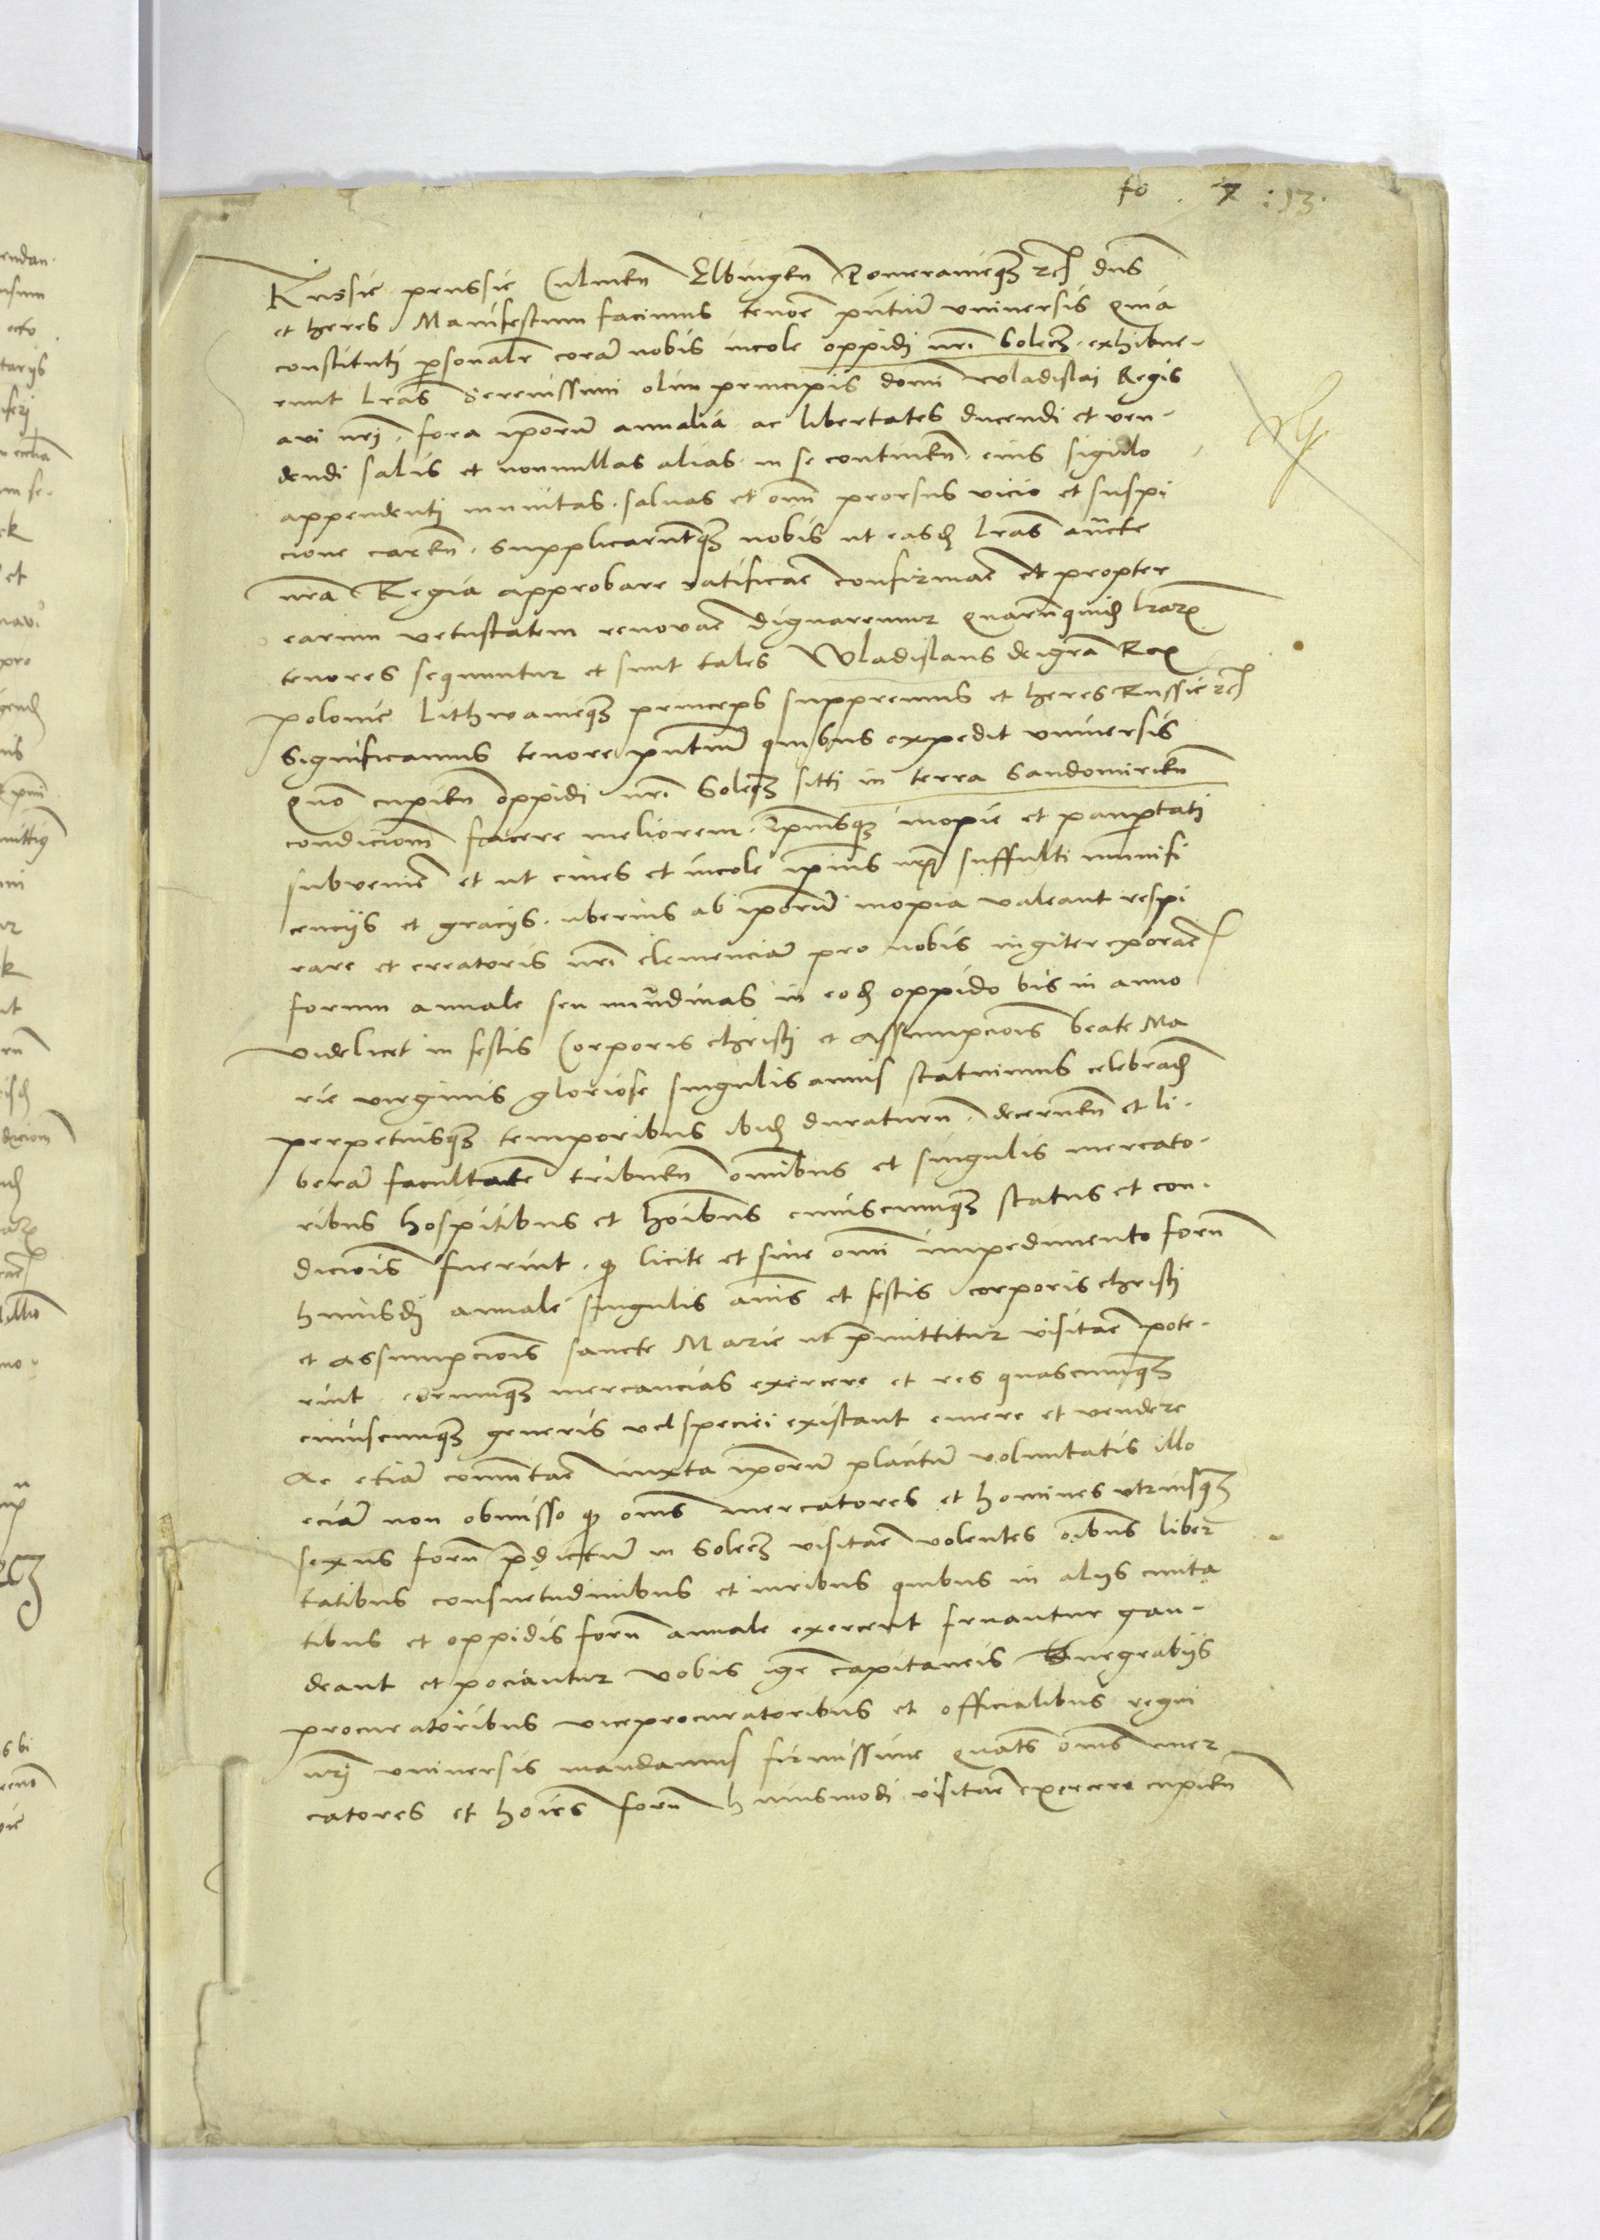 fo . 7 : 13.
Russie prussie Culmen Elbingen Pomeranieqȝ etc dns
et heres Manifestum facimus tenore pntium vniversis Quia
constituti psonalr coram nobis incole oppidi nri Solecz exhibue-
runt lras Serenissimi olim principis domi Wladislai Regis
avi nri, fora ipsorum annalia ac libertates ducendi et ven-
dendi salis et nonnullas alias in se continen. eius sigillo
appendenti munitas. salvas et omi prorsus vicio et suspi
cione caren. supplicaruntqȝ nobis ut easd lras aucte
nra Regia approbare ratificare confirmare et propter
earum vetustatem renovare dignaremur quarumquid lrarum
tenores sequuntur et sunt tales Wladislaus dei gra Rex
polonie Lithwanieqȝ princeps suppremus et heres Russie etc
Significamus tenore pntium quibus expedit vniversis
Quo cupien oppidi nri Solecz sitti in terra Sandomirien
condiciom facere meliorem. Ipsiusqȝ inopie et paupertati
subvenire et ut cives et incole ipsius nra suffulti munifi
cencijs et gracijs. uberius ab ipsorum inopia valeant respi
rare et creatoris nri clemenciam pro nobis iugiter exorare
forum annale seu nundinas in eod oppido bis in anno
videlicet in festis Corporis christi et Assumpcionis beate Ma
rie virginis gloriose singulis annis statuimus celebrand
perpetuisqȝ temporibus ibid duraturum. decernen et li-
beram facultatem tribuen omibus et singulis mercato-
ribus hospitibus et hoibus cuiuscumqȝ status et con-
dicionis fuerint. qȝ licite et sine omi impedimento forum
huiusdi annale singulis annis et festis corporis christi
et assumpcionis sancte Marie ut pmittitur visitare pote-
rint. earumqȝ mercancias exercere et res quascumqȝ
cuiuscumqȝ generis vel speciei existant emere et vendere
Ac etiam commutare iuxta ipsorum placitum voluntatis illo
eciam non obmisso qȝ oms mercatores et homines utriusqȝ
sexus forum pdictum in Solecz visitare volentes oibus liber
tatibus consuetudinibus et iuribus quibus in alijs civita
tibus et oppidis forum annale exercent fruantur gau-
deant et pociantur vobis igr Capitaneis Burgrabijs
procuratoribus viceprocuratoribus et officialibus regni
nri vniversis mandamus firmissime Quats oms mer
catores et hoies forum huiusmodi visitare exercere cupien